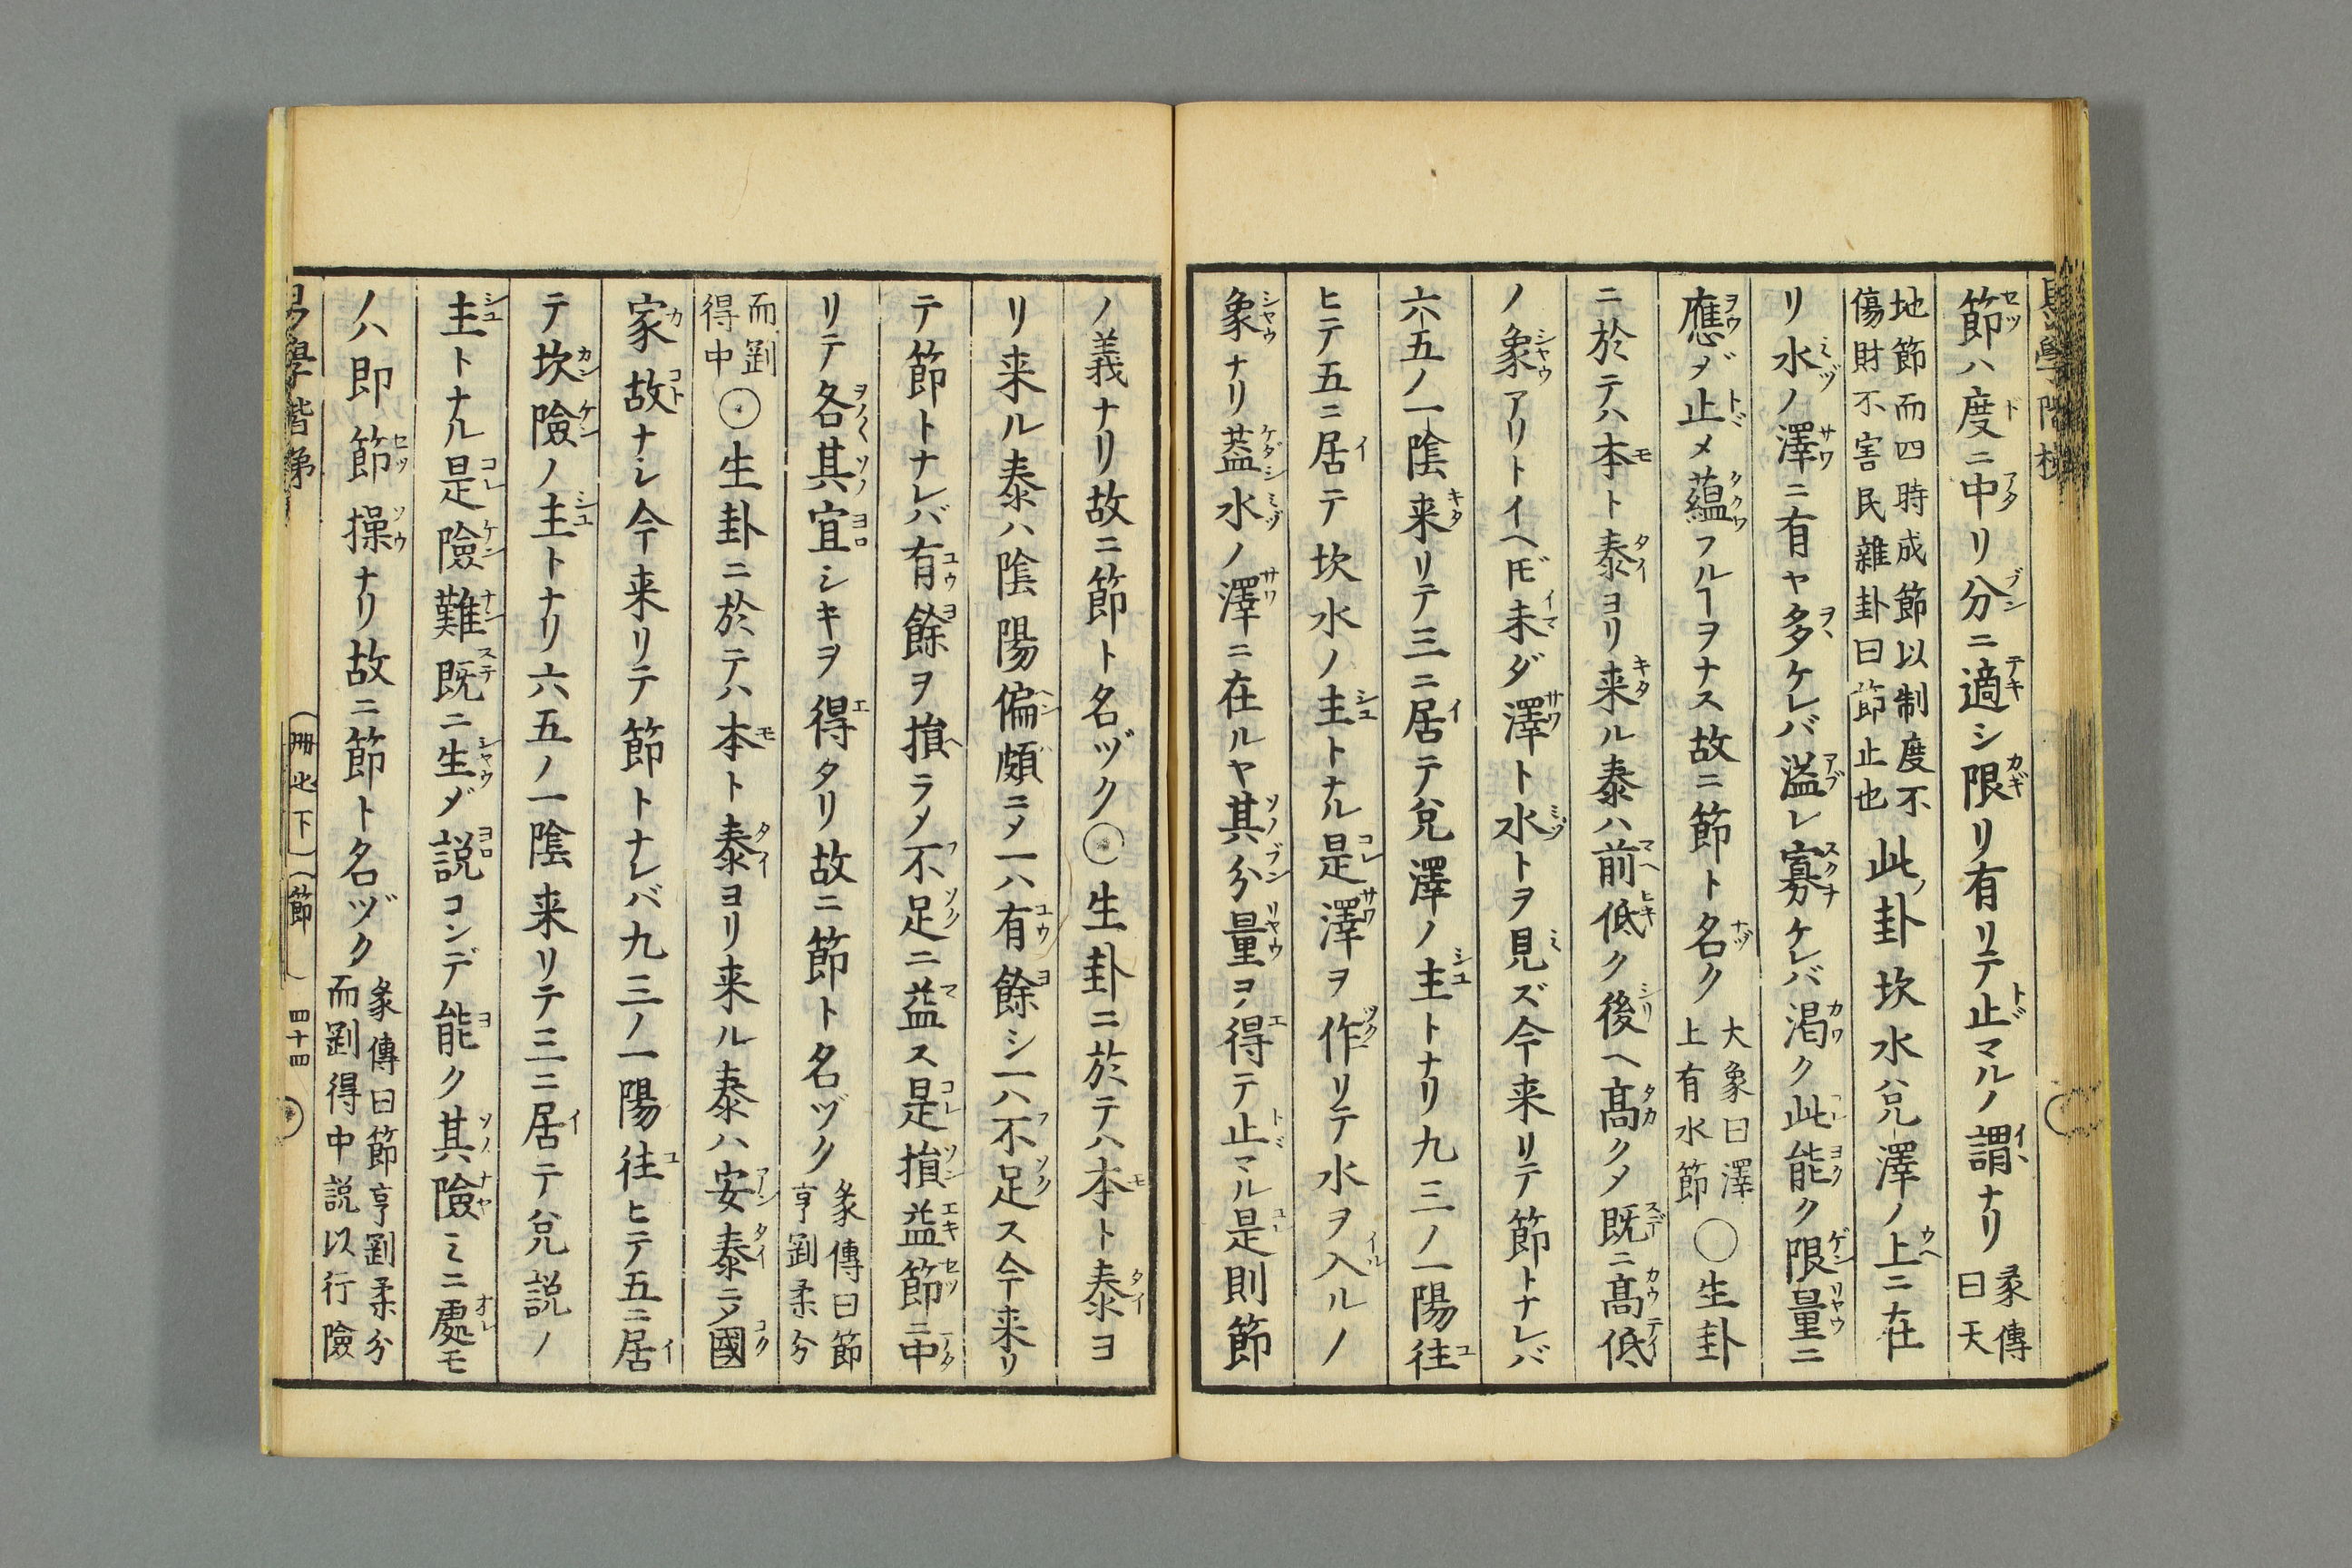 節ハ度ニ中リ分ニ適シ限リ有リテ止マルノ謂ナリ彖傳曰天
地節而四時成節以制度不傷財不害民雜卦曰節止也此ノ卦坎水兌澤ノ上ニ在
リ水ノ澤ニ有ヤ多ケレバ溢レ寡ケレバ渇ク此能ク限量ニ
應ジ止メ蘊フルヿヲナス故ニ節ト名ク大象曰澤上有水節〇生卦
ニ於テハ本ト泰ヨリ来ル泰ハ前低ク後ヘ髙クメ既ニ髙低
ノ象アリトイヘドモ未ダ澤ト水トヲ見ズ今来リテ節トナレバ
六五ノ一陰来リテ三ニ居テ兌澤ノ主トナリ九三ノ一陽往
ヒテ五ニ居テ坎水ノ主トナル是澤ヲ作リテ水ヲ入ルノ
象ナリ蓋水ノ澤ニ在ルヤ其分量ヲ得テ止マル是則節
ノ義ナリ故ニ節ト名ヅク〇生卦ニ於テハ本ト泰ヨ
リ来ル泰ハ陰陽偏頗ニメ一ハ有餘シ一ハ不足ス今来リ
テ節トナレバ有餘ヲ損ラメ不足ニ益ス是損益節ニ中
リテ各其宜シキヲ得タリ故ニ節ト名ヅク彖傳曰節亨剛柔分
而剛得中〇生卦ニ於テハ本ト泰ヨリ来ル泰ハ安泰ニメ國
家故ナシ今来リテ節トナレバ九三ノ一陽往ヒテ五ニ居
テ坎險ノ主トナリ六五ノ一陰来リテ三ニ居テ兌説ノ
主トナル是險難既ニ生ジ説コンデ能ク其險ミニ處モ
ノハ即節操ナリ故ニ節ト名ヅク彖傳曰節亨剛柔分而剛得中説以行險
易學階梯
冊之下
節
四十四